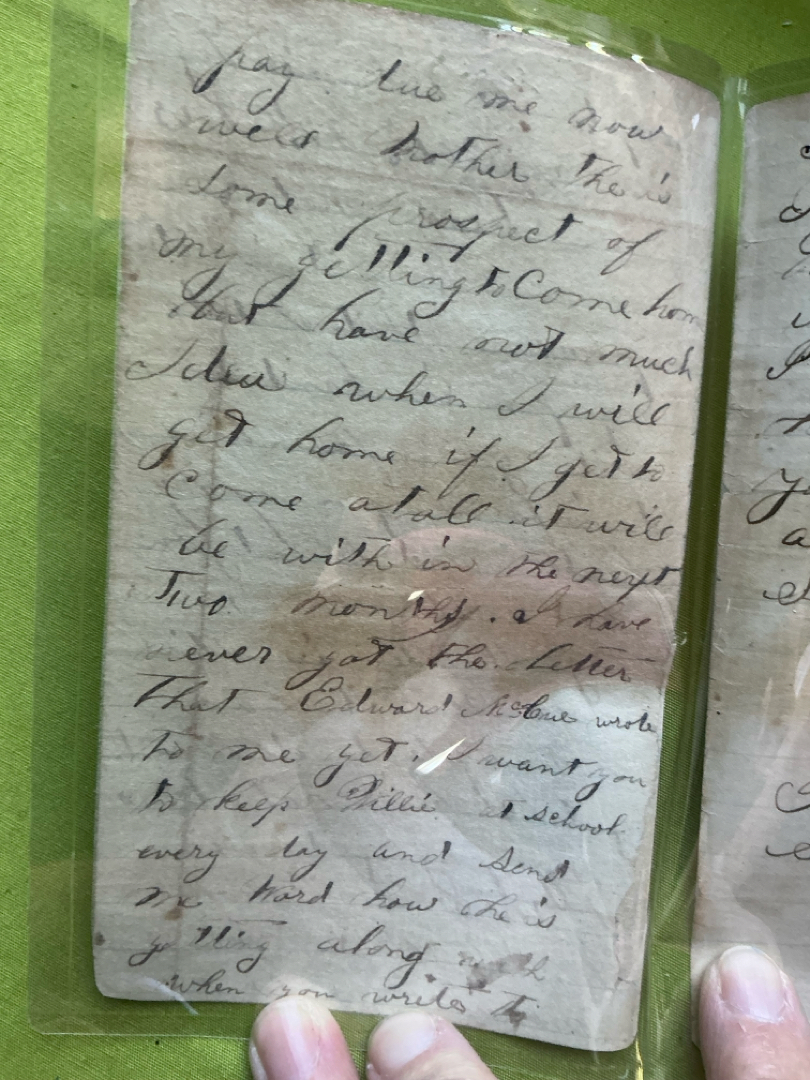 pay due me now
well brother the is
some prospect of
my getting to Come hom
but have not much
Idea when I will
get home if I get to
come atall it will
be with in the next
Two months. I have
never got the letter
That Edward McCue wrote
to me yet. I want you
to keep Willie at school
every day and send
me word how he is
getting along
when you writes to